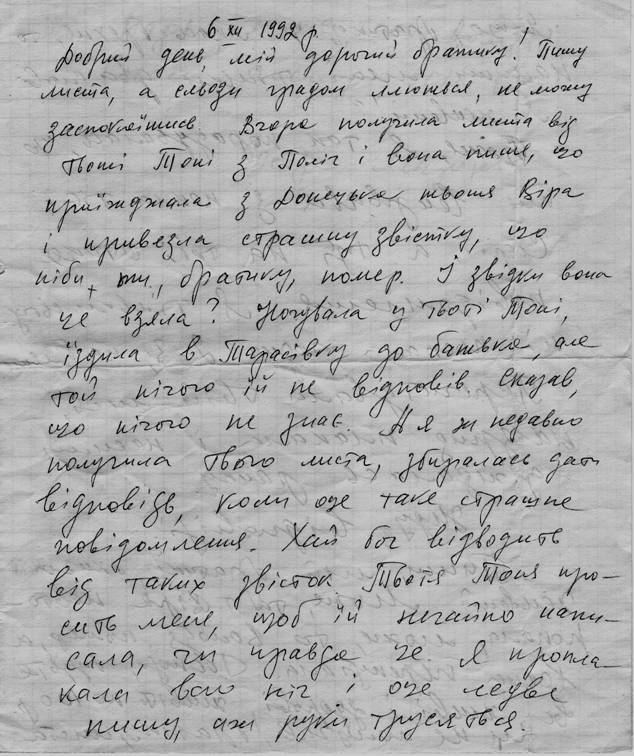 6 XII 1992 р.
Добрий день, мій дорогий братику! Пишу
листа, а сльози градом ллються, не можу
заспокоїтись. Вчора получила листа від
тьоті Тоні з Поліч і вона пише, що
приїжджала з Донецька тьотя Віра
і привезла страшну звістку, що
ніби ти, братику, помер. І звідки вона
це взяла? Ночувала у тьоті Тоні,
їздила в Тарасівку до батька, але
той нічого їй не відповів. Сказав,
що нічого не знає. А я ж недавно
получила твого листа, збиралась дати
відповідь, коли оце таке страшне
повідомлення. Хай бог відводить
від таких звісток. Тьотя Тоня про-
сить мене, щоб їй негайно напи-
сала, чи правда це. Я пропла-
кала всю ніч і оце ледве
пишу, аж руки трусяться.